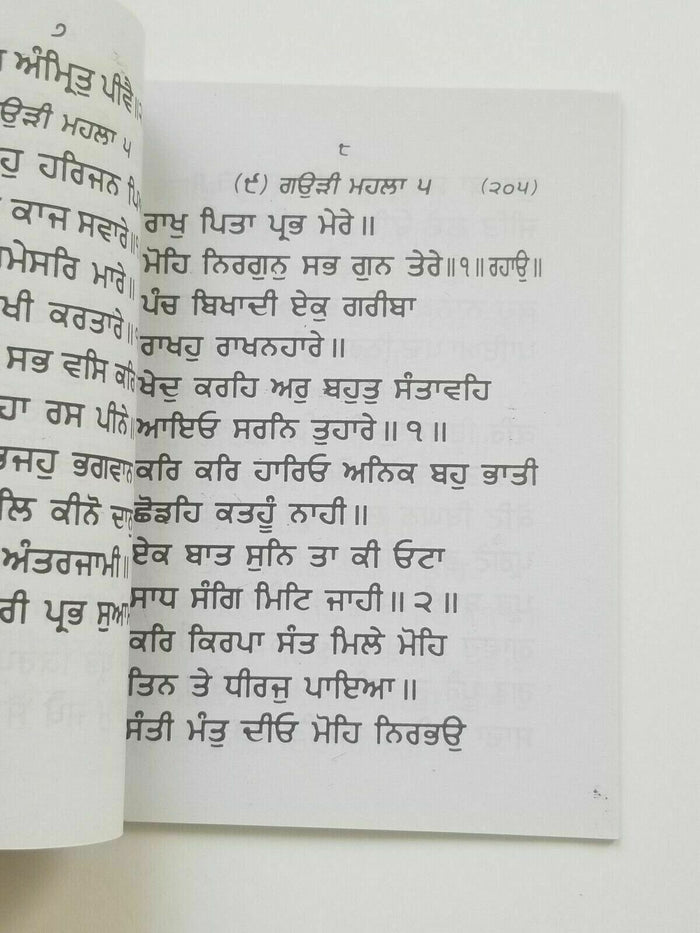 ੭
ਅੰਮ੍ਰਿਤੁ ਪੀਵੈ॥
ਗਉੜੀ ਮਹਲਾ ੫
ਹਰਿਜਨ
ਕਾਜ ਸਵਾਰੇ॥
ਮਾਰੇ॥
ਕਰਤਾਰੇ॥
ਸਭ ਵਸਿ ਕਰਿ
ਰਸ ਪੀਨੇ
ਭਗਵਾਨ
ਕੀਨੋ
ਅੰਤਰਜਾਮੀ॥
ਪ੍ਰਭ
੮
(੯) ਗਉੜੀ ਮਹਲਾ ੫ (੨੦੫)
ਰਾਖੁ ਪਿਤਾ ਪ੍ਰਭ ਮੇਰੇ॥
ਮੋਹਿ ਨਿਰਗੁਨੁ ਸਭ ਗੁਨ ਤੇਰੇ॥੧॥ਰਹਾਉ॥
ਪੰਚ ਬਿਖਾਦੀ ਏਕੁ ਗਰੀਬਾ
ਰਾਖਹੁ ਰਾਖਨਹਾਰੇ॥
ਖੇਦੁ ਕਰਹਿ ਅਰੁ ਬਹੁਤੁ ਸੰਤਾਵਹਿ
ਆਇਓ ਸਰਨਿ ਤੁਹਾਰੇ॥੧॥
ਕਰਿ ਕਰਿ ਹਾਰਿਓ ਅਨਿਕ ਬਹੁ ਭਾਤੀ
ਛੋਡਹਿ ਕਤਹੂੰ ਨਾਹੀ॥
ਏਕ ਬਾਤ ਸੁਨਿ ਤਾ ਕੀ ਓਟਾ
ਸਾਧ ਸੰਗਿ ਮਿਟਿ ਜਾਹੀ॥੨॥
ਕਰਿ ਕਿਰਪਾ ਸੰਤ ਮਿਲੇ ਮੋਹਿ
ਤਿਨ ਤੇ ਧੀਰਜੁ ਪਾਇਆ॥
ਸੰਤੀ ਮੰਤੁ ਦੀਓ ਮੋਹਿ ਨਿਰਭਉ